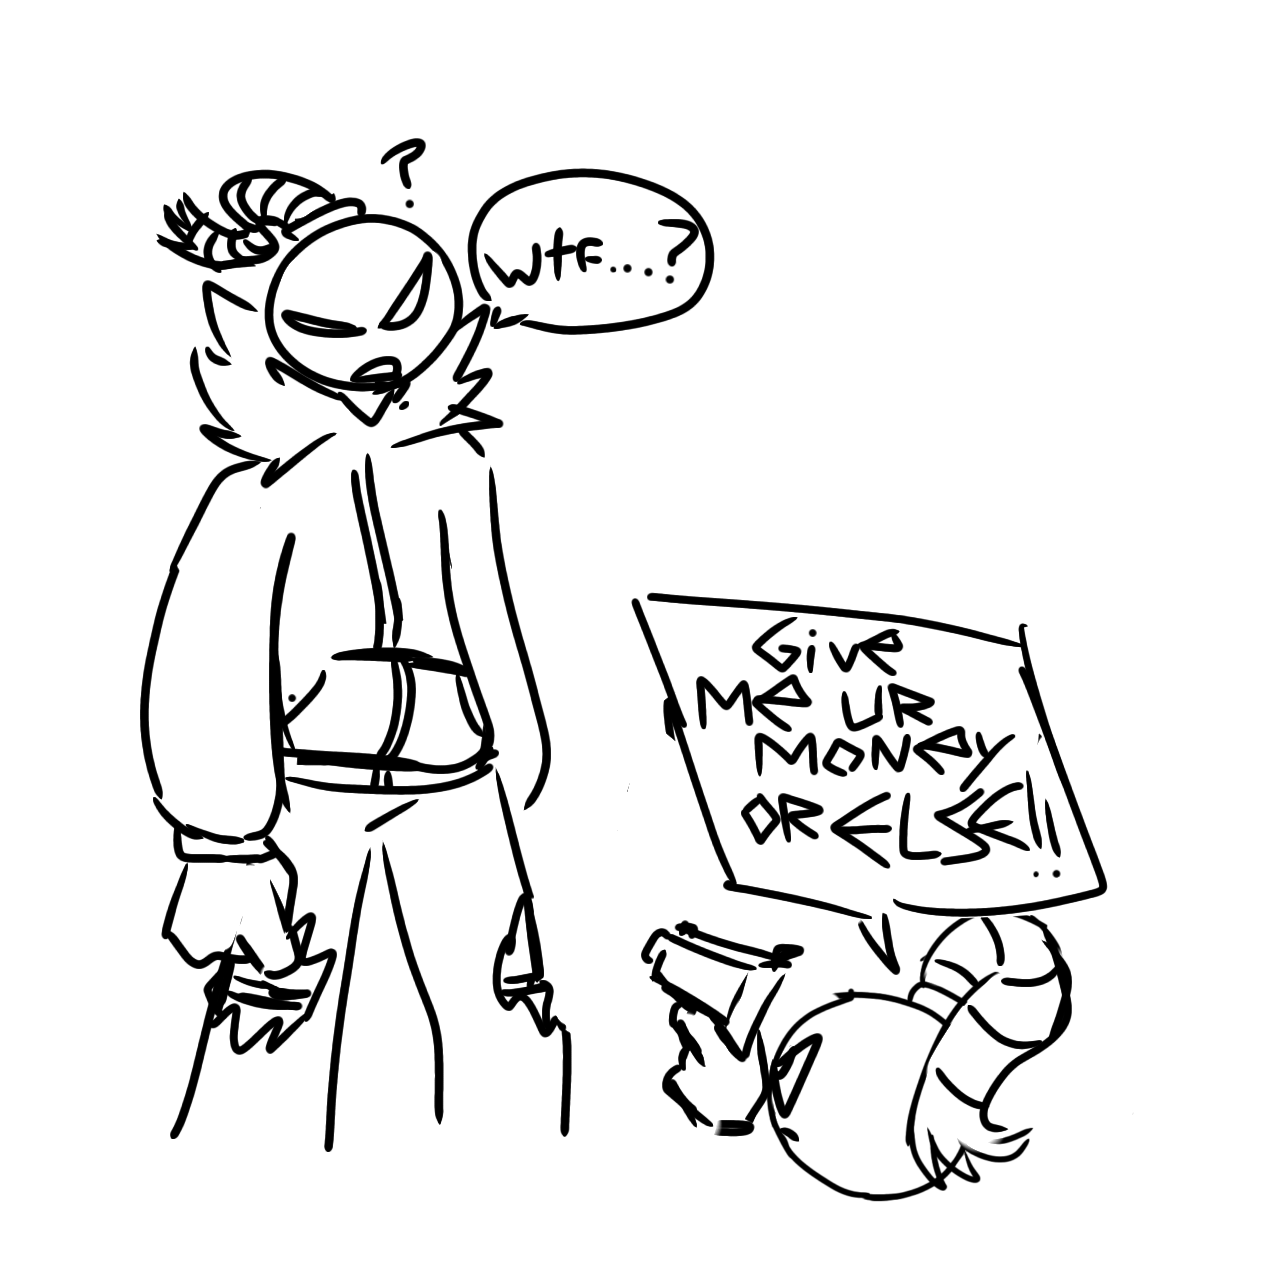 ?
wtf....?
Give
Me UR
MONey
OR ELSE!!